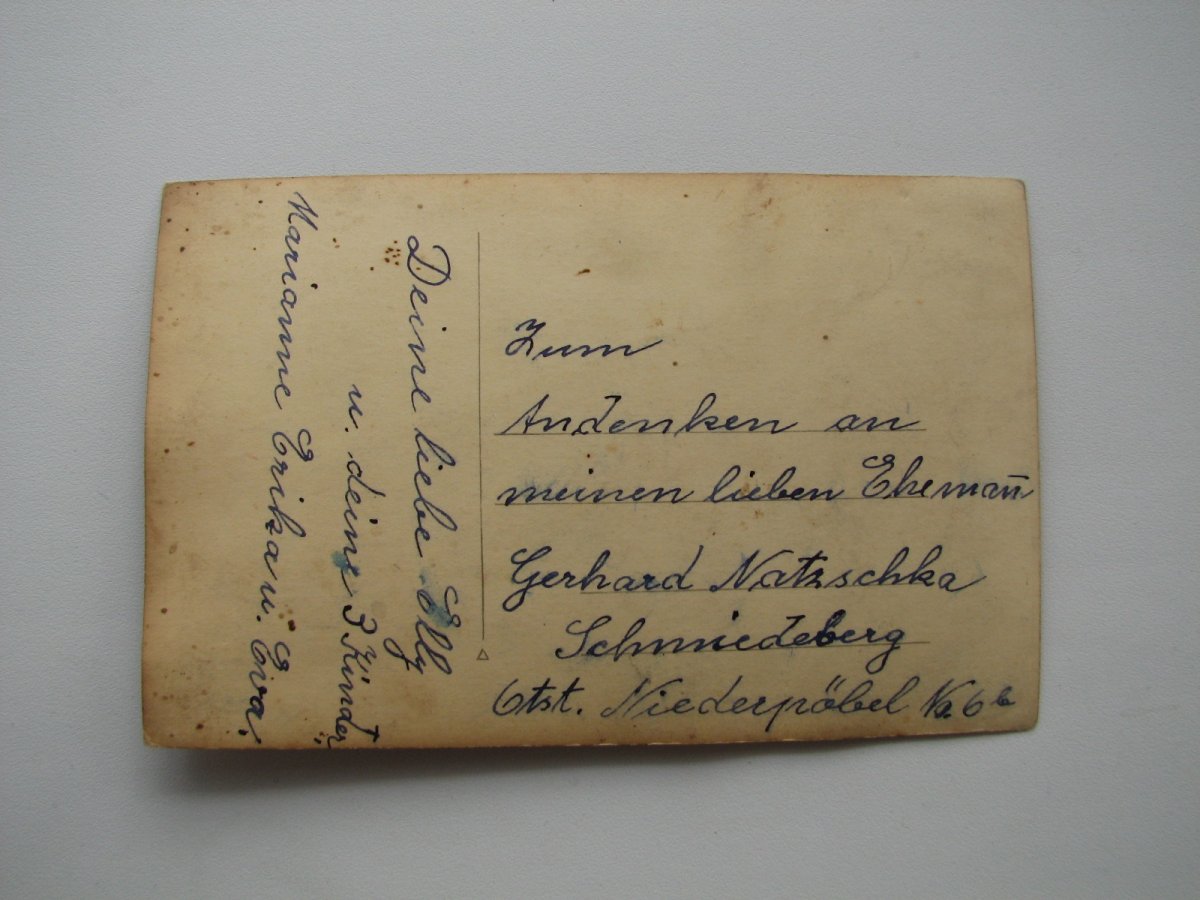 Zum
Andenken an
meinen lieben Ehemañ
Gerhard Natzschka
Schmiedeberg
Otst. Niederpöbel No. 6 b
Deine liebe Elly
u. deine 3 Kinder
Marianne Erika u. Eva.